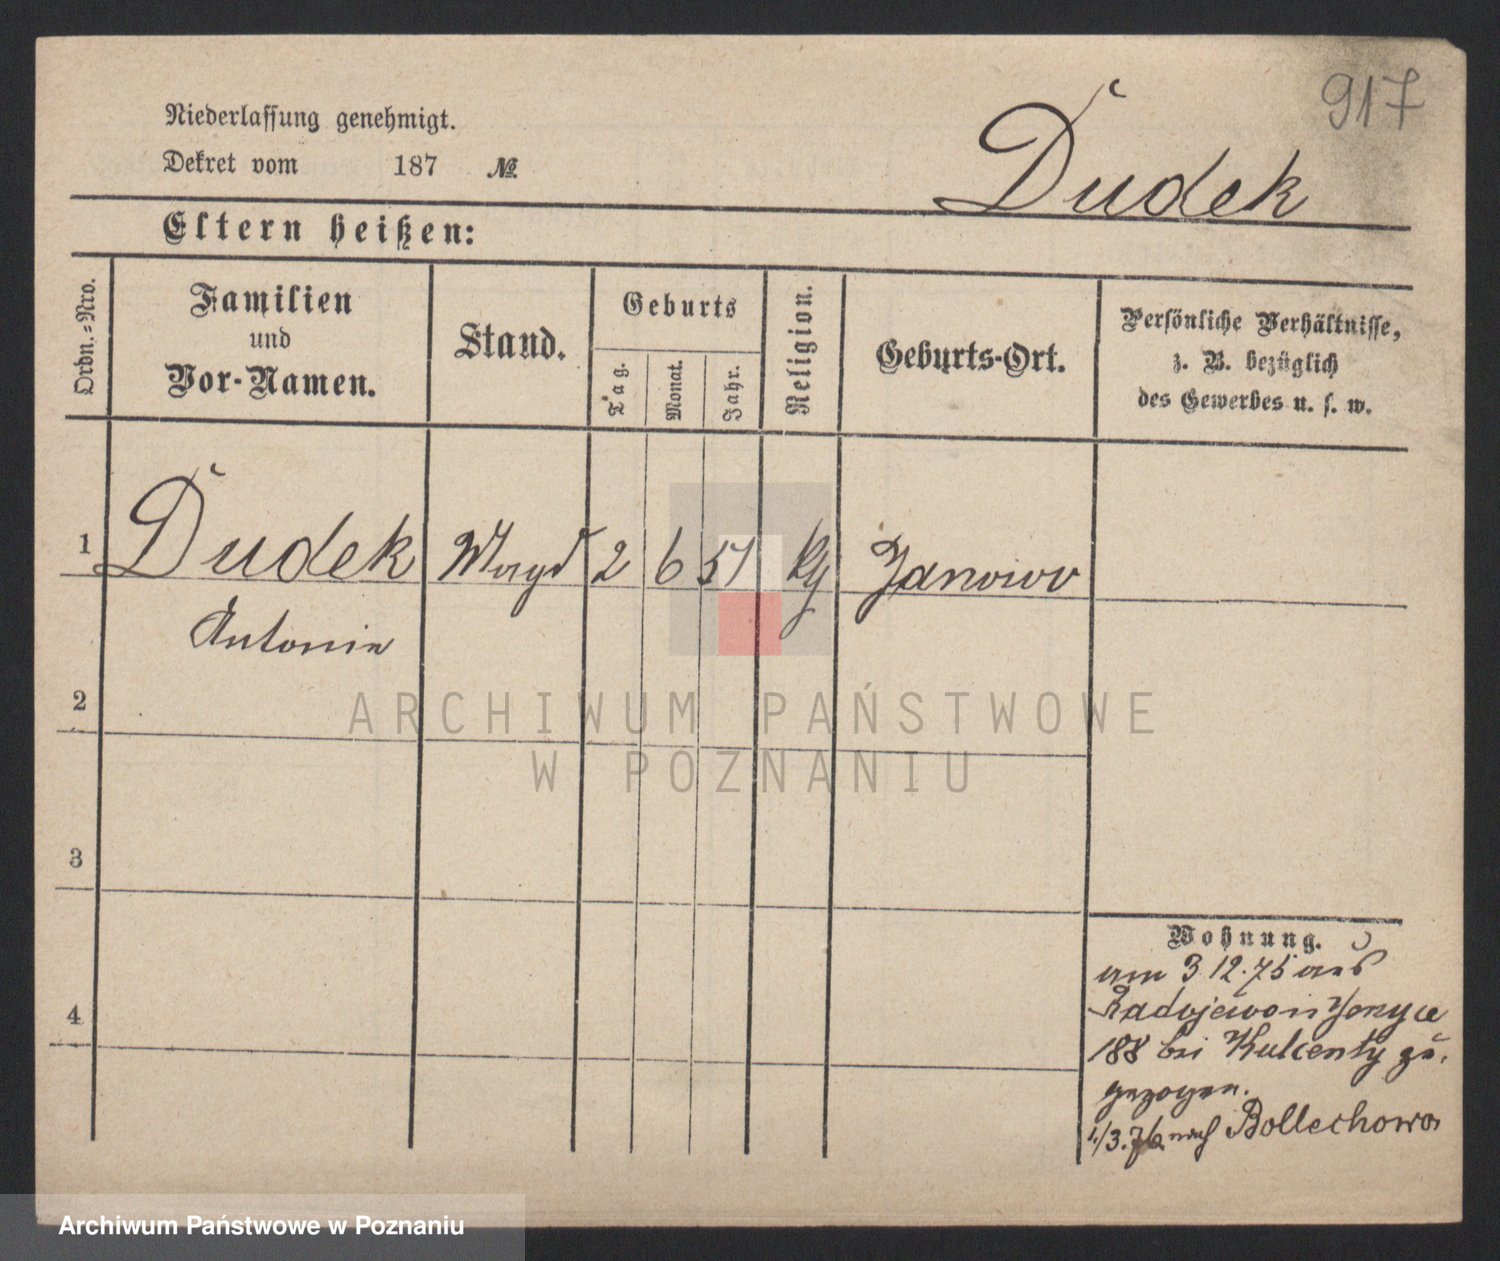 917
Niederlassung genehmigt.
Dekret vom 187 №
Dudek
Eltern heißen:
Ordn.-Nro.
Familien
und
Vor-Namen.
Stand.
Geburts
Tag.
Monat.
Jahr.
Religion.
Geburts-Ort.
Persönliche Verhältnisse,
z. B. bezüglich
des Gewerbes u. s. w.
1 Dudek Magd 2 6 51 Janowo
Antonie
2
3
4
Wohnung.
am 3 12.75 aus
Radojewo
188 bei zu-
gezogen.
1/3.76. nach Bollechowo
ARCHIWUM PAŃSTWOWE
W POZNANIU
Archiwum Państwowe w Poznaniu